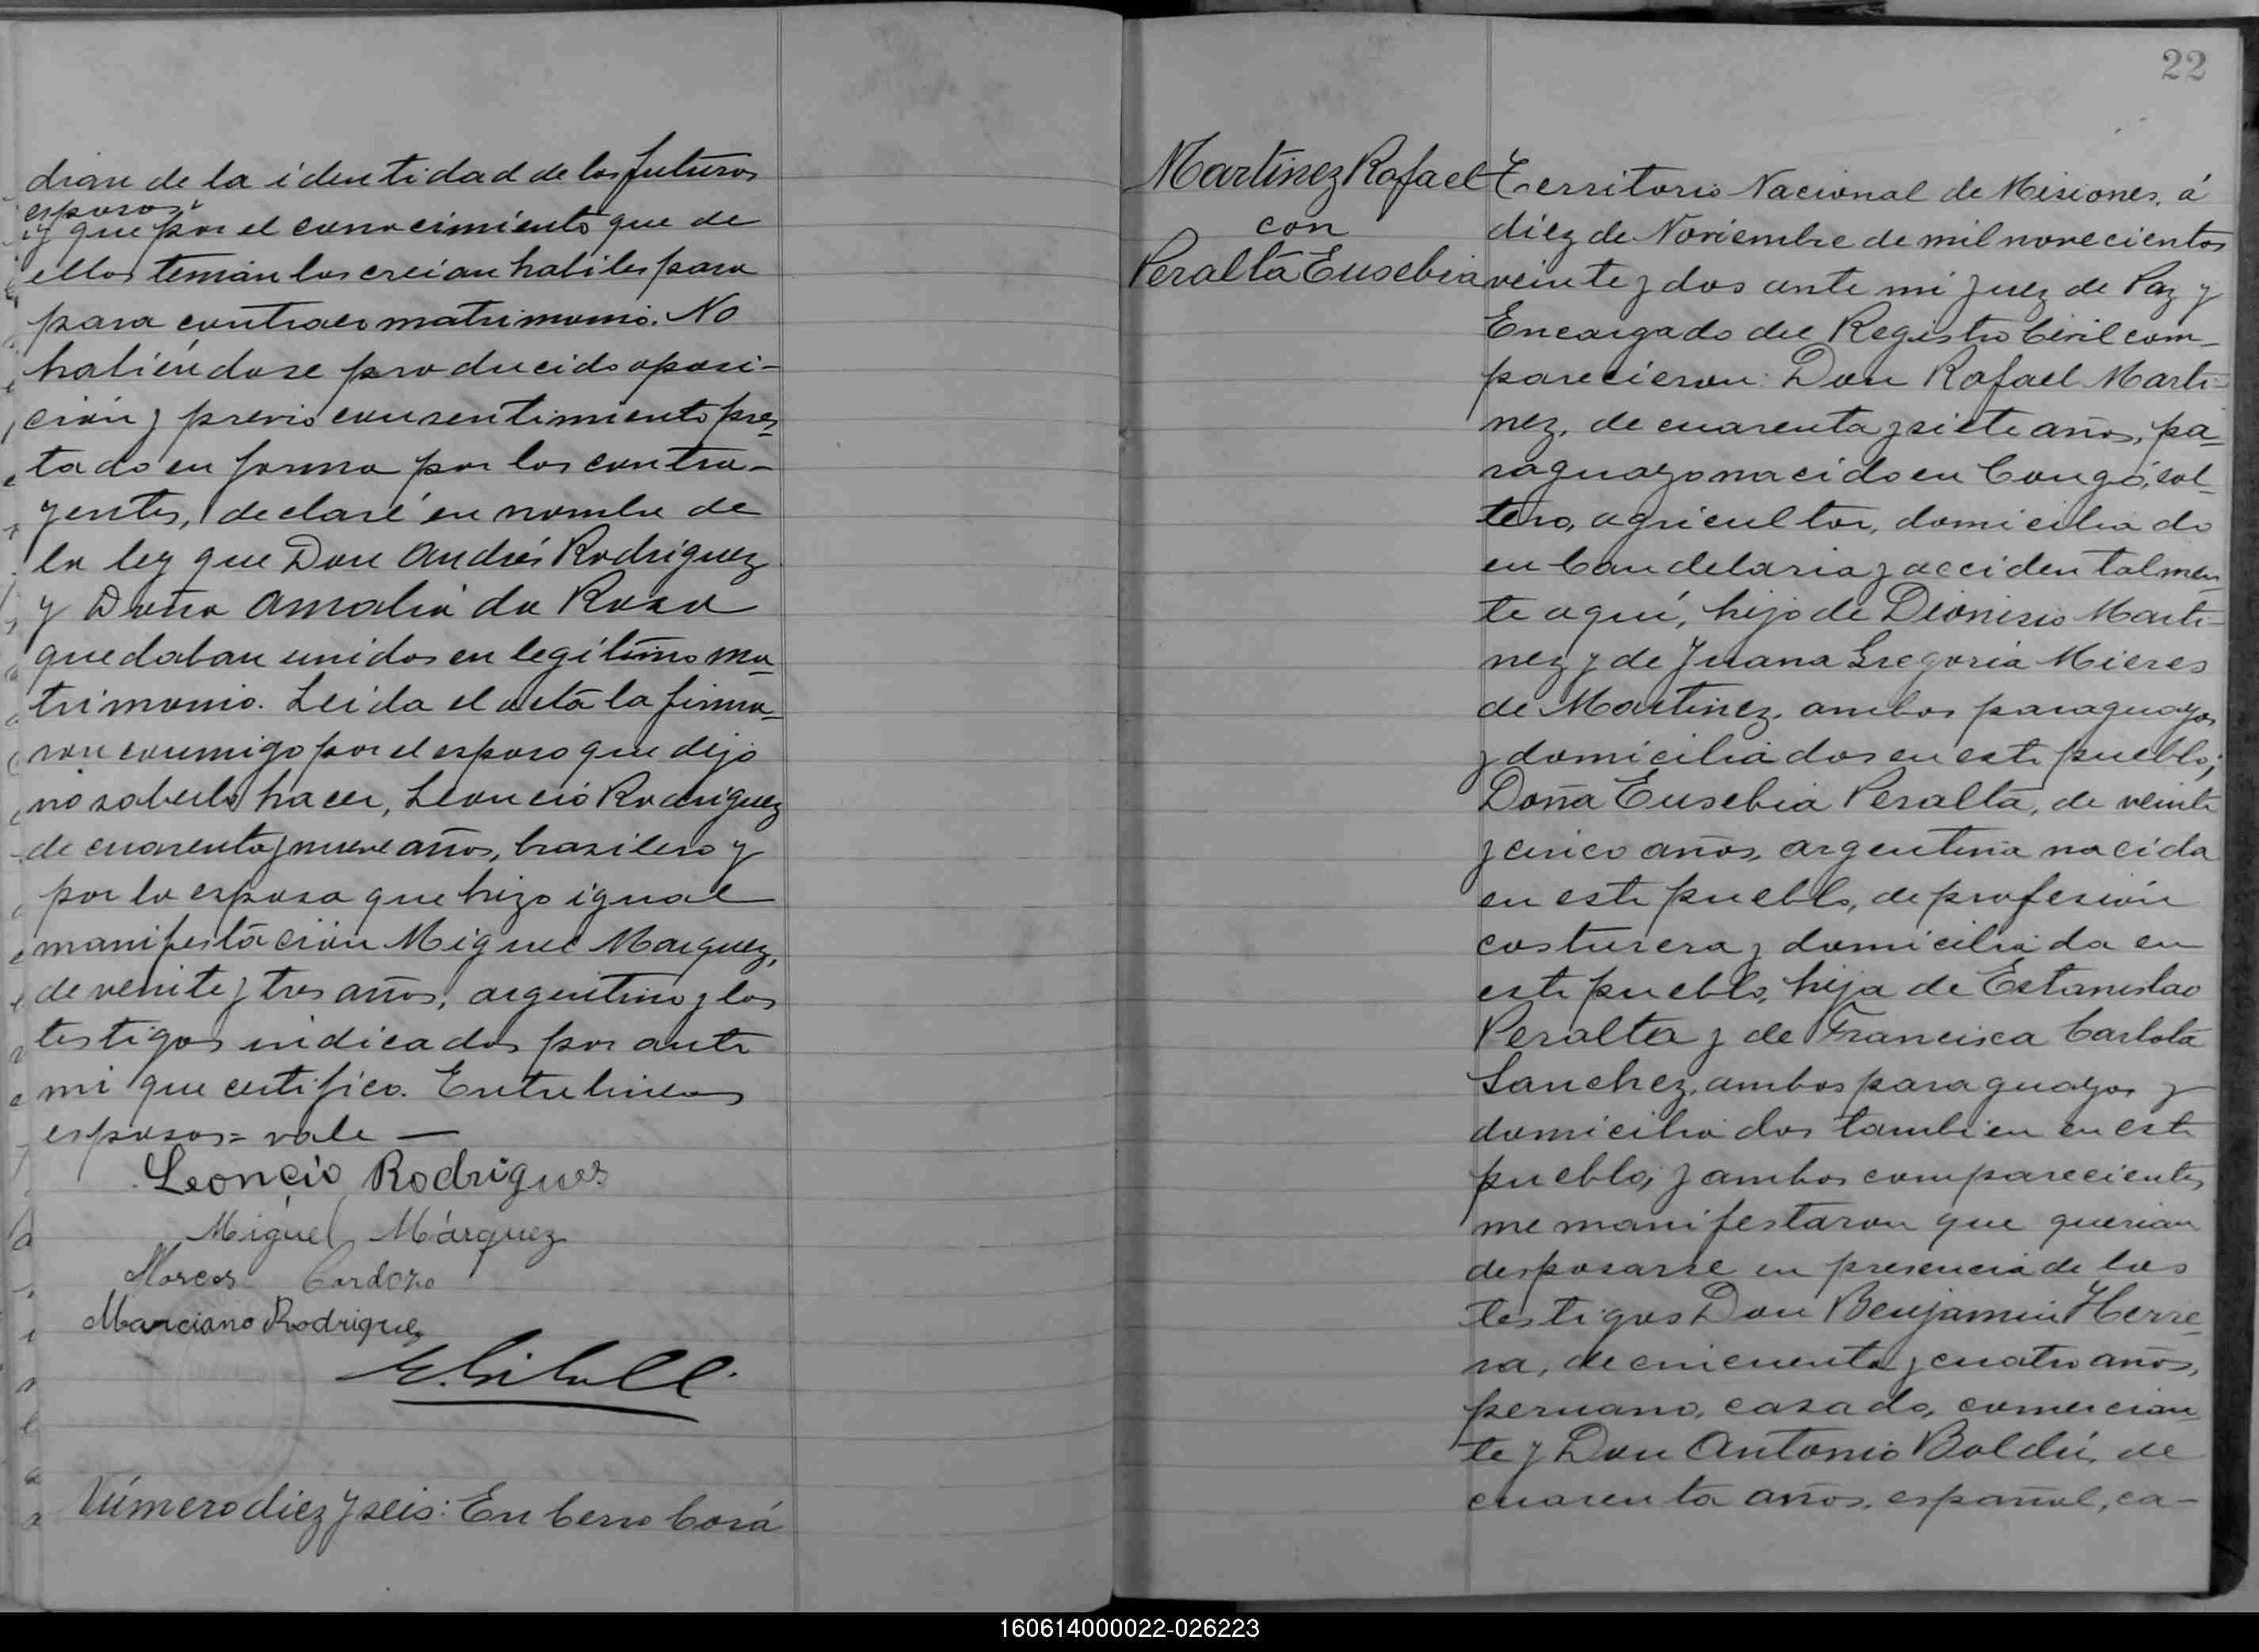 dian de la identidad de los futuros
esposos
y que por el conocimiento que de
ellos tenian los creian habiles para
para contraer matrimonio. No
habiéndose producido oposi-
ción y previo consentimiento pres
tado en forma por los contra-
yentes, declaré en nombre de
la ley que Don Andrés Rodriguez
y Doña Amalia da Rosa
quedaban unidos en legitimo ma
trimonio. Leida el acta la firma-
ron conmigo por el esposo que dijo
no saberlo hacer, Leoncio Rodriguez
de cuarenta y nueve años, brasilero y
por la esposa que hizo igual
manifestación Miguel Marquez,
de veinte y tres años, argentino y los
testigos indicados por ante
mi que certifico. Entrelineas
esposos = vale —
Leoncio Rodrigues
Miguel Márquez
Marcos Cardozo
Marciano Rodriguez
Número diez y seis: En Cerro Corá
22
Martinez Rafael
con
Peralta Eusebia
Territorio Nacional de Misiones, á
diez de Noviembre de mil novecientos
veinte y dos ante mi Juez de Paz y
Encargado del Registro Civil com-
parecieron: Don Rafael Marti-
nez, de cuarenta y siete años, pa-
raguayo nacido en Cangó, sol-
tero, agricultor, domiciliado
en Candelaria y accidentalmen-
te aquí, hijo de Dionisio Marti-
nez y de Juana Gregoria Mieres
de Martinez, ambos paraguayos
y domiciliados en este pueblo;
Doña Eusebia Peralta, de veinte
y cinco años, argentina nacida
en este pueblo, de profesión
costurera y domiciliada en
este pueblo, hija de Estanislao
Peralta y de Francisca Carlota
Sanchez, ambos paraguayos y
domiciliados tambien en este
pueblo; y ambos comparecientes
me manifestaron que querian
desposarse en presencia de los
testigos Don Benjamin Herre-
ra, de cincuenta y cuatro años,
peruano, casado, comercian
te y Don Antonio Boldú, de
cuarenta años, español, ca-
160614000022-026223